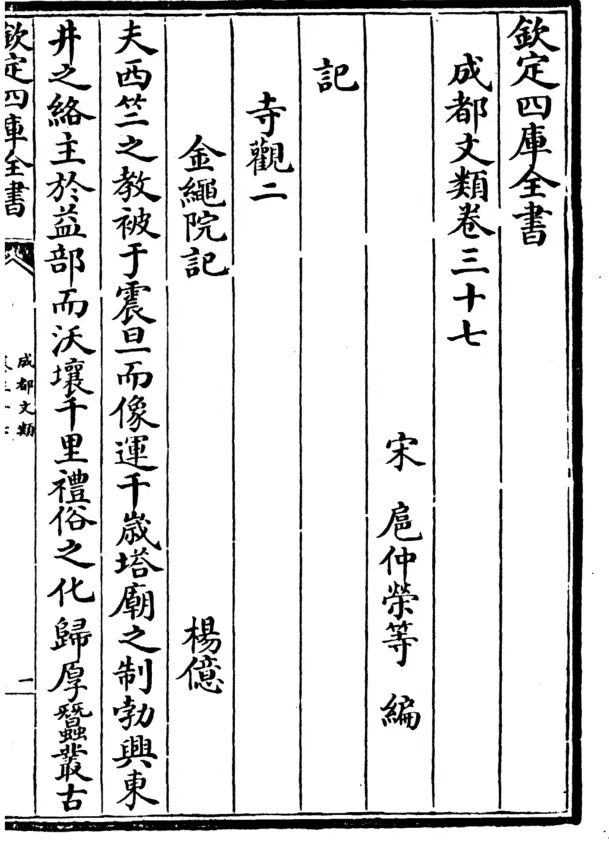 欽定四庫全書
成都文類卷三十七
宋 扈仲榮等 編
記
寺觀二
金繩院記 楊億
夫西竺之教被于震旦而像運千歲塔廟之制勃興東
井之絡主於益部而沃壤千里禮俗之化歸厚蠶叢古
欽定四庫全書
成都文類
一